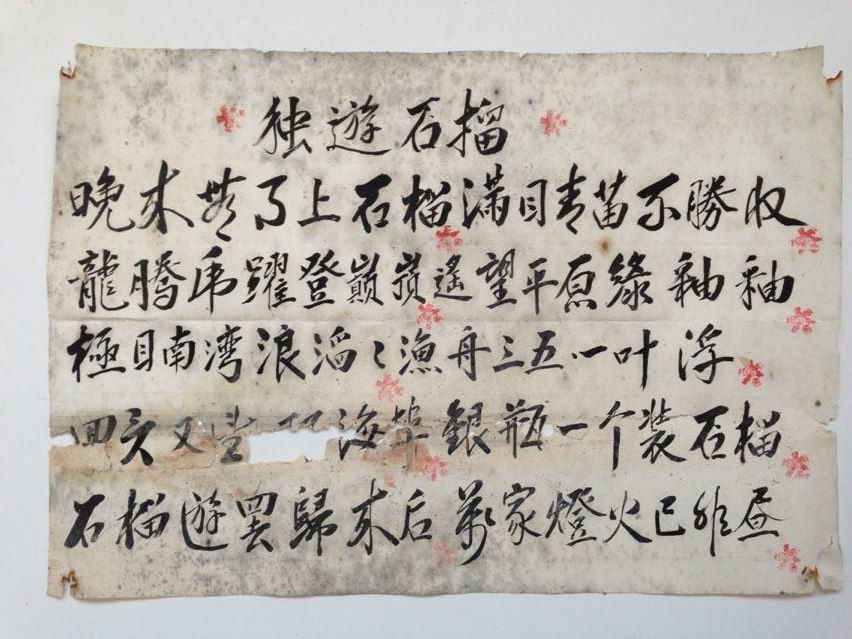 独遊石榴
晚来 上石榴满目青苗不勝收
龍騰虎躍登巅 遙望平原綠釉釉
極目南湾浪滔〻漁舟三五一叶浮
回 又 海 銀瓶一个装石榴
石榴遊罢歸来后萬家燈火已 昼